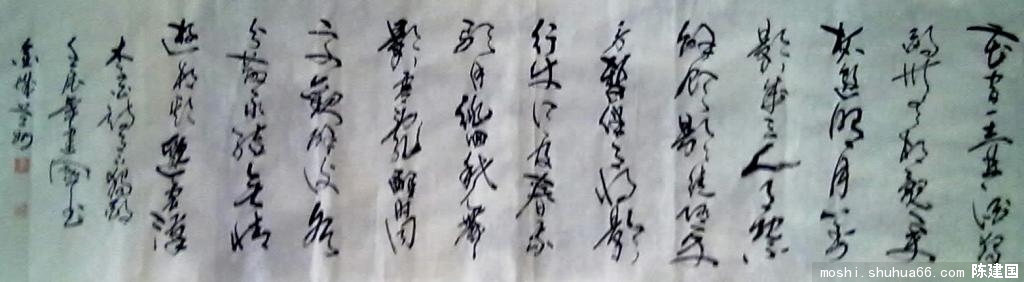 花間一壺酒獨
酌無相親舉
杯邀明月對
影成三人月既不
解飲影徒隨我
身暫伴月將影
行樂須及春我
歌月徘徊我舞
影零亂醒時同
交歡醉後各
分散永結無情
遊相期邈雲漢
李白詩月下獨酌
年建國書
moshi.shuhua66.com 陈建国